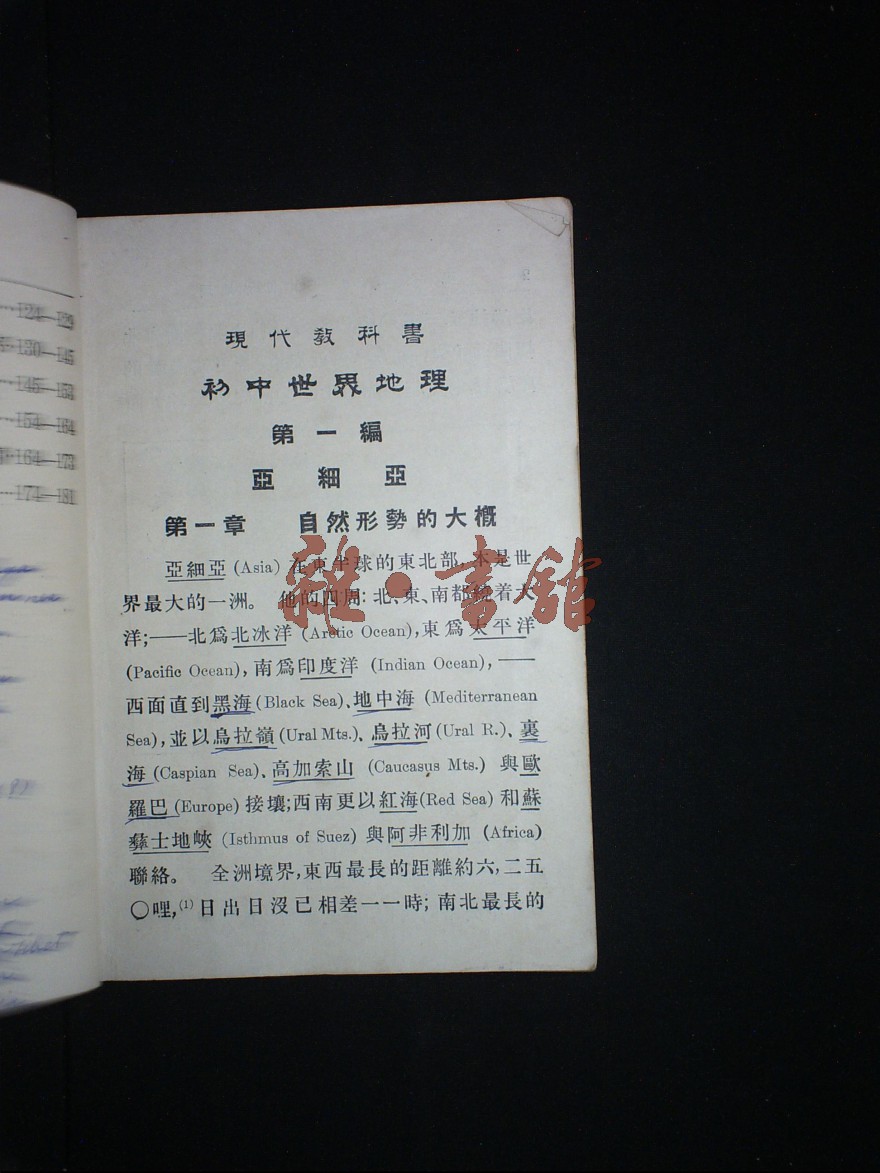 124—129
130—145
145—153
154—164
164—173
174—181
現代教科書
初中世界地理
第一編
亞細亞
第一章 自然形勢的大概
亞細亞 (Asia) 在東半球的東北部,本是世
界最大的一洲。 他的四周:北、東、南都繞着大
洋;——北爲北冰洋 (Arctic Ocean),東爲太平洋
(Pacific Ocean),南爲印度洋 (Indian Ocean),——
西面直到黑海 (Black Sea)、地中海 (Mediterranean
Sea),並以烏拉嶺 (Ural Mts.)、烏拉河 (Ural R.)、裏
海 (Caspian Sea)、高加索山 (Caucasus Mts.) 與歐
羅巴 (Europe) 接壤;西南更以紅海 (Red Sea) 和蘇
彝士地峽 (Isthmus of Suez) 與阿非利加 (Africa)
聯絡。 全洲境界,東西最長的距離約六,二五
〇哩,(1)日出日沒已相差一一時;南北最長的
雜·書館